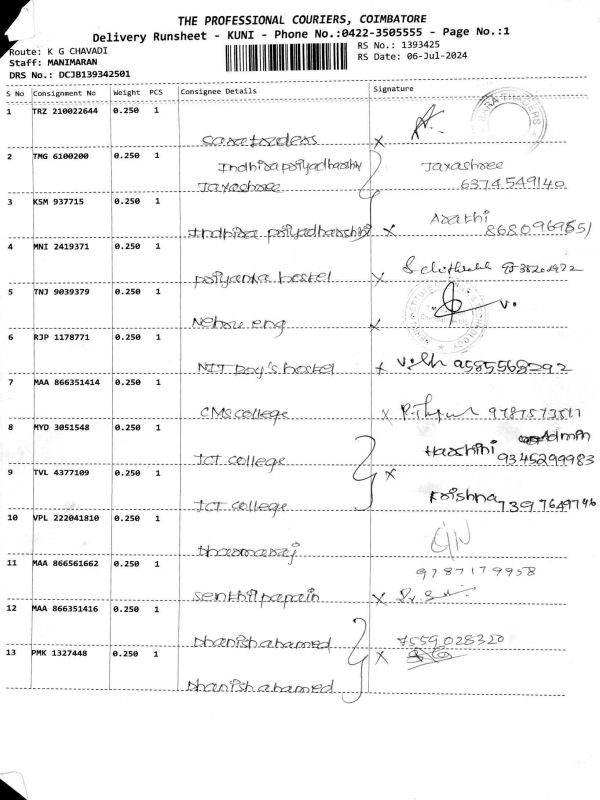 THE PROFESSIONAL COURIERS, COIMBATORE
Delivery Runsheet - KUNI - Phone No.:0422-3505555 - Page No.:1
Route: K G CHAVADI
RS No.: 1393425
Staff: MANIMARAN
RS Date: 06-Jul-2024
DRS No.: DCJB139342501
S No Consignment No Weight PCS Consignee Details Signature
1 TRZ 210022644 0.250 1
x
2 TMG 6100200 0.250 1 Indhira priyadharshiv Jaxashree
Jaxashree 6374549140
3 KSM 937715 0.250 1 Arathi
Indhira priyadharshini x 8680969851
4 MNI 2419371 0.250 1
priyanka hostel x
5 TNJ 9039379 0.250 1
Nehru eng x
6 RJP 1178771 0.250 1
NIT Boy's hostel x 9585568292
7 MAA 866351414 0.250 1
CMS college x
8 MYD 3051548 0.250 1 Admin
Harshini
JCT college 9345299983
9 TVL 4377109 0.250 1 x
Krishna
JCT college 7397649746
10 VPL 222041810 0.250 1
tharmaraj
11 MAA 866561662 0.250 1 9787179958
senthil papain x
12 MAA 866351416 0.250 1
Dhanish ahamed 7559028320
13 PMK 1327448 0.250 1 x
Dhanish ahamed